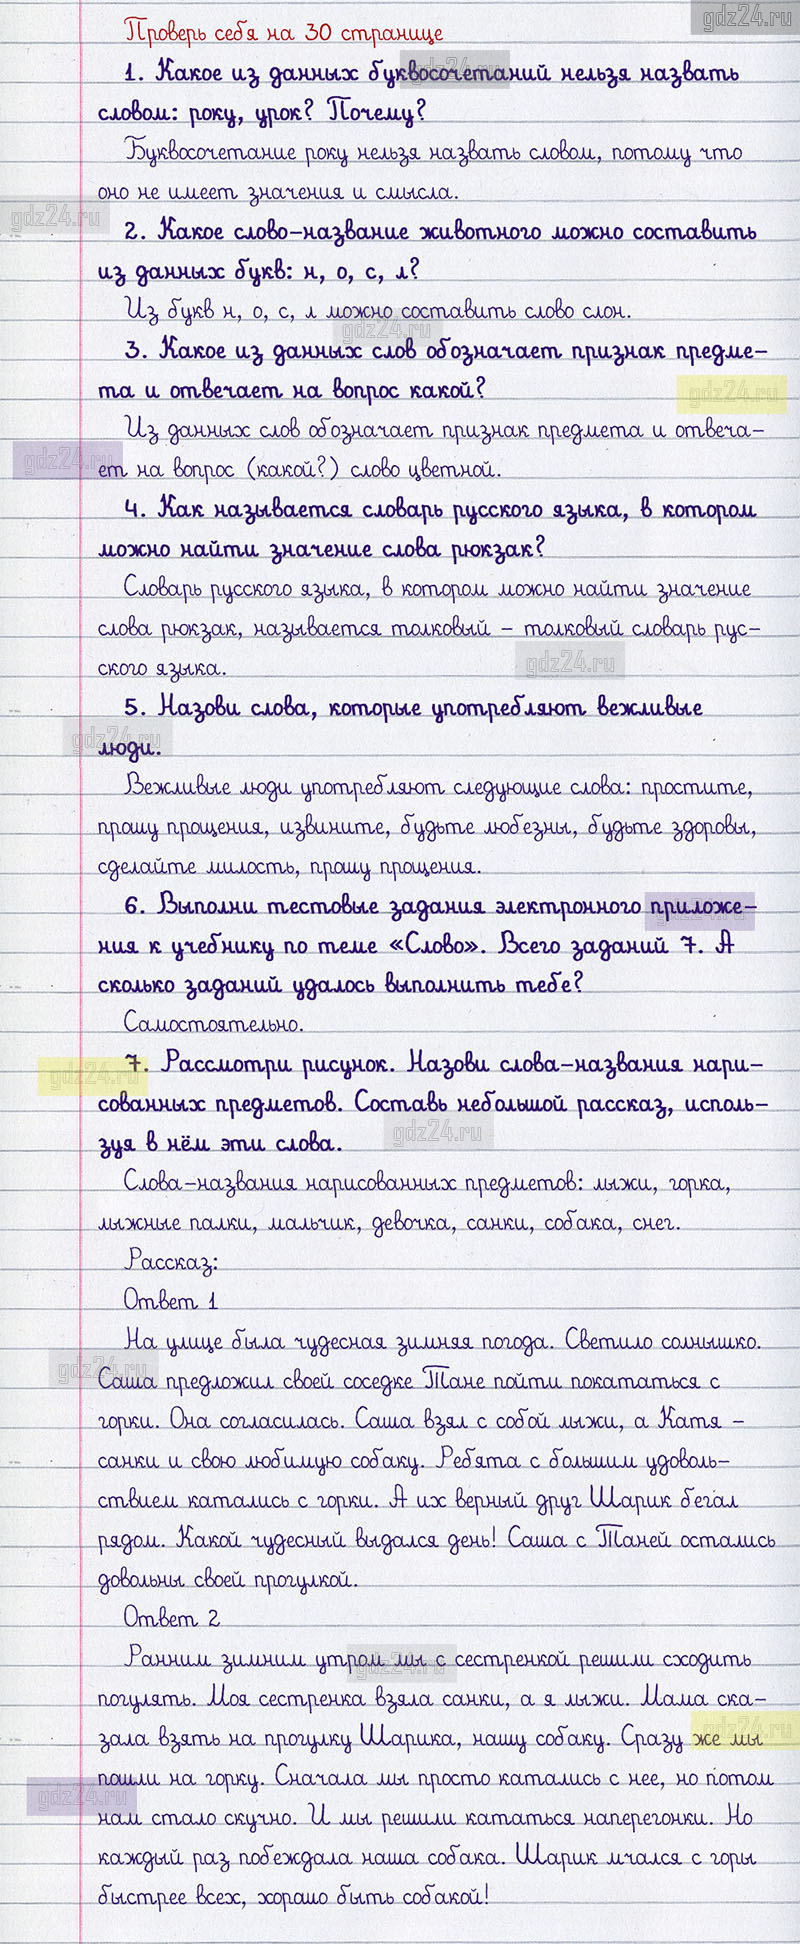 gdz24.ru
Проверь себя на 30 странице
gdz24.ru
1. Какое из данных буквосочетаний нельзя назвать
словом: року, урок? Почему?
Буквосочетание року нельзя назвать словом, потому что
оно не имеет значения и смысла.
gdz24.ru
2. Какое слово-название животного можно составить
из данных букв: н, о, с, л?
Из букв н, о, с, л можно составить слово слон.
gdz24.ru
3. Какое из данных слов обозначает признак предме-
та и отвечает на вопрос какой?
gdz24.ru
Из данных слов обозначает признак предмета и отвеча-
gdz24.ru
ет на вопрос (какой?) слово цветной.
4. Как называется словарь русского языка, в котором
можно найти значение слова рюкзак?
Словарь русского языка, в котором можно найти значение
слова рюкзак, называется толковый – толковый словарь рус-
ского языка.
gdz24.ru
5. Назови слова, которые употребляют вежливые
gdz24.ru
люди.
Вежливые люди употребляют следующие слова: простите,
прошу прощения, извините, будьте любезны, будьте здоровы,
сделайте милость, прошу прощения.
6. Выполни тестовые задания электронного приложе-
gdz24.ru
ния к учебнику по теме «Слово». Всего заданий 7. А
сколько заданий удалось выполнить тебе?
Самостоятельно.
7. Рассмотри рисунок. Назови слова-названия нари-
gdz24.ru
сованных предметов. Составь небольшой рассказ, исполь-
gdz24.ru
зуя в нём эти слова.
Слова-названия нарисованных предметов: лыжи, горка,
лыжные палки, мальчик, девочка, санки, собака, снег.
Рассказ:
Ответ 1
На улице была чудесная зимняя погода. Светило солнышко.
gdz24.ru
Саша предложил своей соседке Тане пойти покататься с
горки. Она согласилась. Саша взял с собой лыжи, а Катя –
санки и свою любимую собаку. Ребята с большим удоволь-
ствием катались с горки. А их верный друг Шарик бегал
рядом. Какой чудесный выдался день! Саша с Таней остались
довольны своей прогулкой.
Ответ 2
Ранним зимним утром мы с сестренкой решили сходить
gdz24.ru
погулять. Моя сестренка взяла санки, а я лыжи. Мама ска-
зала взять на прогулку Шарика, нашу собаку. Сразу же мы
gdz24.ru
пошли на горку. Сначала мы просто катались с нее, но потом
gdz24.ru
нам стало скучно. И мы решили кататься наперегонки. Но
каждый раз побеждала наша собака. Шарик мчался с горы
быстрее всех, хорошо быть собакой!